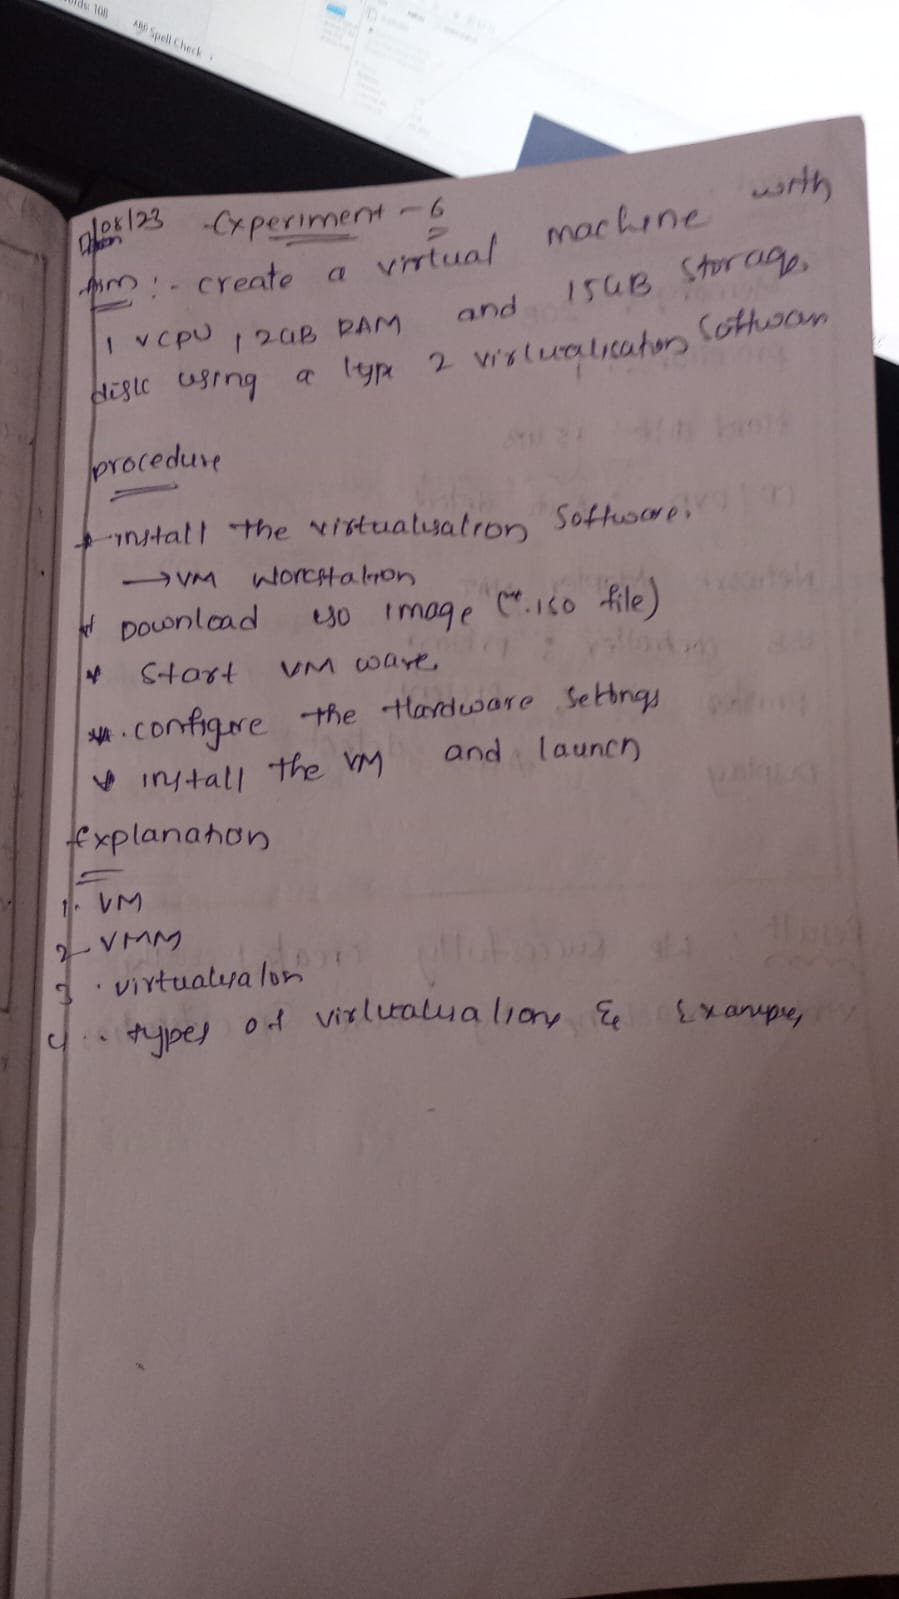 Spell Check
/08/23 Experiment - 6
Aim :- create a virtual machine with
1 vCPU, 2GB RAM and 15GB storage
disk using a type 2 virtualisation Software
procedure
* install the virtualysation Software.
→ VM Workstation
* Download ISO image (*.iso file)
* Start VM ware.
* configure the Hardware Settings
* install the VM and launch
Explanation
1. VM
2 VMM
3. virtualysation
4. types of virtualysations & Examples